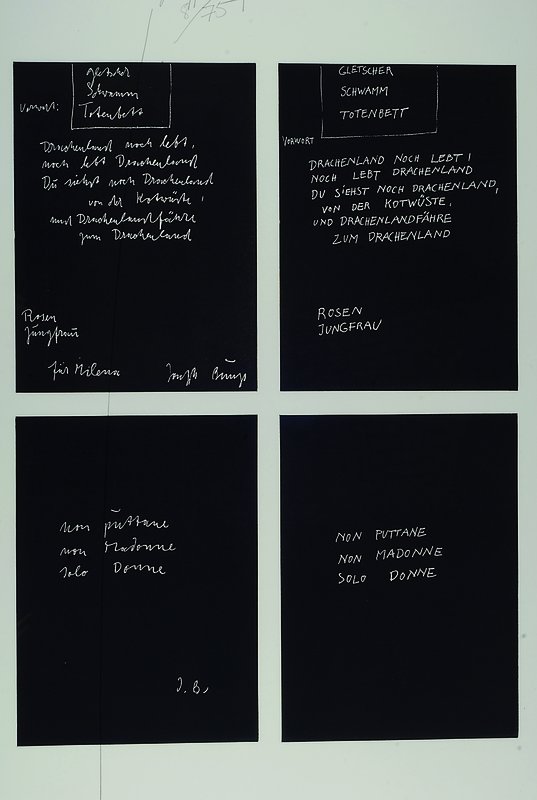 8/75
gletscher
Schwamm
Vorwort: Totenbett
Drachenland noch lebt,
noch lebt Drachenland
Du siehst noch Drachenland
von der Kotwüste,
und Drachenlandfähre
zum Drachenland
Rosen
Jungfrau
für Milena Joseph Beuys
GLETSCHER
SCHWAMM
TOTENBETT
VORWORT
DRACHENLAND NOCH LEBT!
NOCH LEBT DRACHENLAND
DU SIEHST NOCH DRACHENLAND,
VON DER KOTWÜSTE,
UND DRACHENLANDFÄHRE
ZUM DRACHENLAND
ROSEN
JUNGFRAU
non puttane
non Madonne
solo Donne
J. B.
NON PUTTANE
NON MADONNE
SOLO DONNE